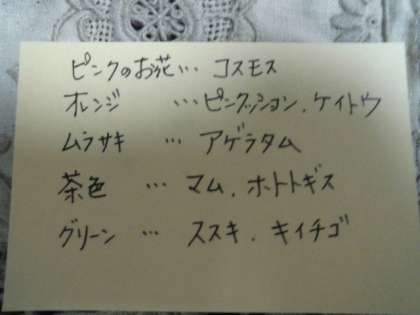 ピンクのお花… コスモス
オレンジ …ピンクッション、ケイトウ
ムラサキ … アゲラタム
茶色 … マム、ホトトギス
グリーン … ススキ、キイチゴ